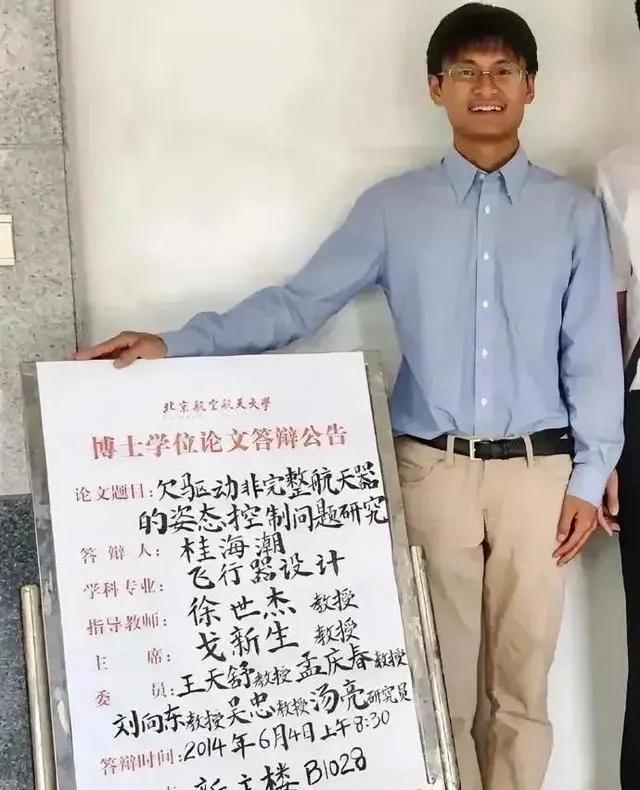 北京航空航天大学
博士学位论文答辩公告
论文题目：欠驱动非完整航天器
的姿态控制问题研究
答辩人：桂海潮
学科专业：飞行器设计
指导教师：徐世杰 教授
主席：戈新生 教授
委员：王天舒教授 孟庆春教授
刘向东教授 吴忠教授 汤亮研究员
答辩时间：2014年6月4日上午8:30
新主楼B1028